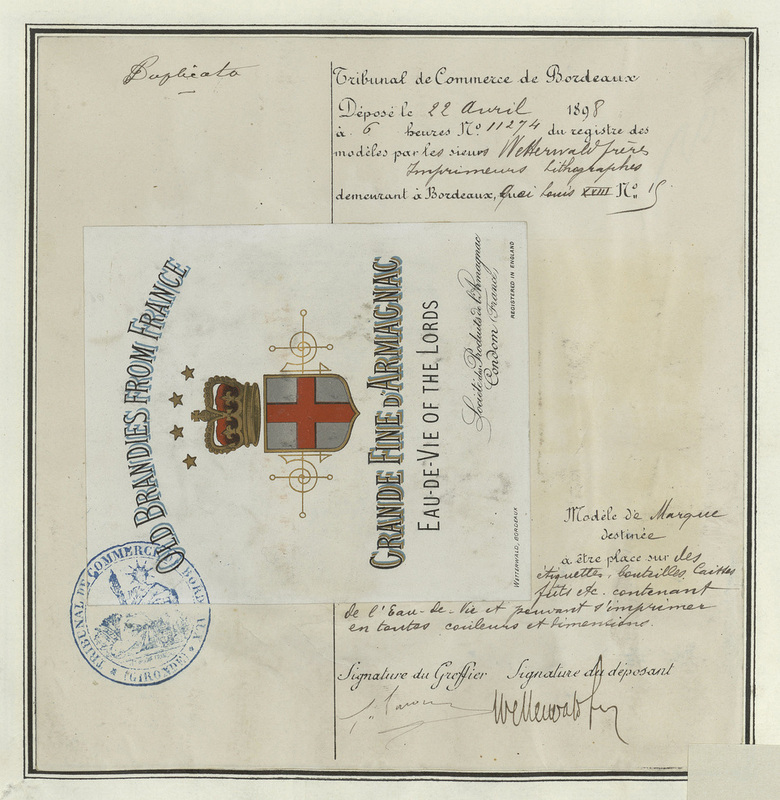 Duplicata
Tribunal de Commerce de Bordeaux
Déposé le 22 Avril 1898
à 6 heures No. 11274 du registre des
modèles par les sieurs Wetterwald frères
Imprimeurs Lithographes
demeurant à Bordeaux, Quai Louis XVIII No. 15
OLD BRANDIES FROM FRANCE
GRANDE FINE D'ARMAGNAC
EAU-DE-VIE OF THE LORDS
Société des Produits de l'Armagnac
Condom (France)
REGISTERED IN ENGLAND
WETTERWALD, BORDEAUX
TRIBUNAL DE COMMERCE BORDEAUX
(GIRONDE)
Modèle de Marque
destinée
à être place sur des
étiquettes, bouteilles, Caisses
futs etc. contenant
de l'Eau-de-Vie et pouvant s'imprimer
en toutes couleurs et dimensions.
Signature du Greffier Signature du déposant
Wetterwald fres